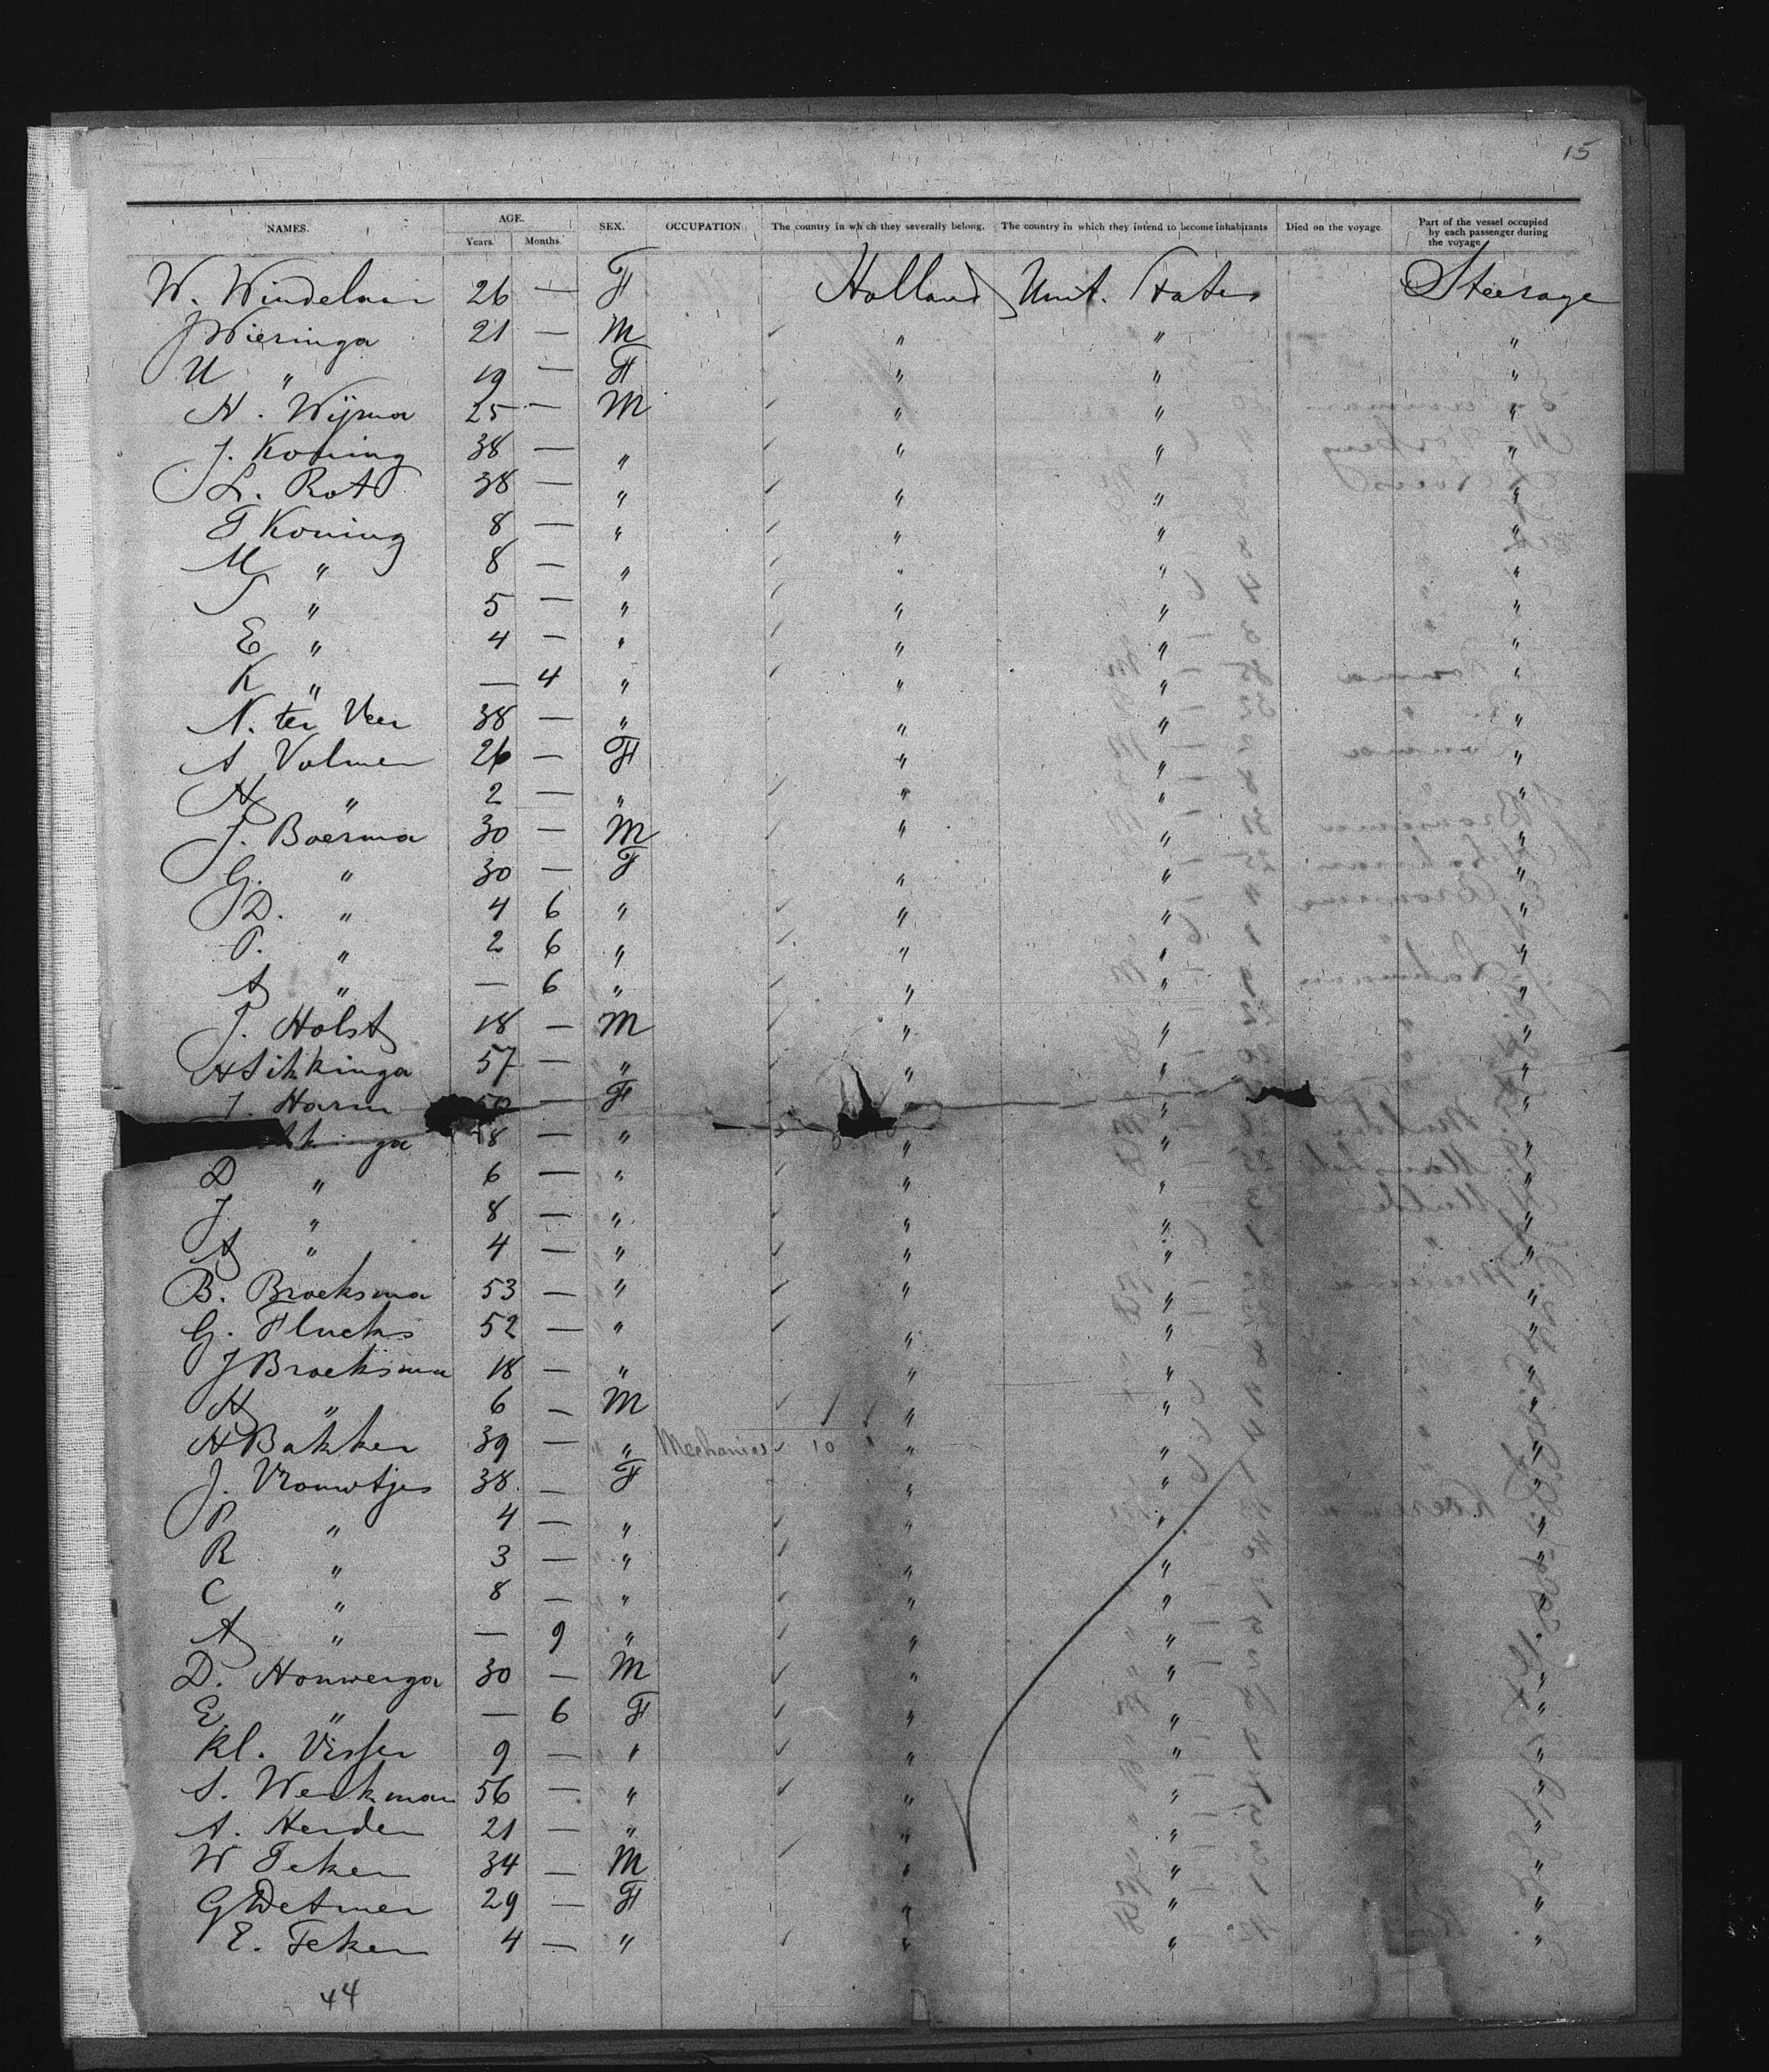 15
NAMES. AGE. SEX. OCCUPATION The country in which they severally belong. The country in which they intend to become inhabitants Died on the voyage. Part of the vessel occupied by each passenger during the voyage
Years. Months.
W. Windelaar 26 — F Holland Unit. States Steerage
J Wieringa 21 — M " " "
U " 19 — F " " "
H. Wijma 25 — M " " "
J. Koning 38 — " " " "
L. Rot 38 — " " " "
T Koning 8 — " " " "
M " 8 — " " " "
J " 5 — " " " "
E " 4 — " " " "
K " — 4 " " " "
N. ter Veer 38 — " " " "
A Volmer 26 — F " " "
H " 2 — " " " "
J. Boerma 30 — M " " "
G. " 30 — F " " "
D. " 4 6 " " " "
P. " 2 6 " " " "
A " — 6 " " " "
J. Holst 18 — M " " "
H Sikkinga 57 — " " " "
J. Harm — F " "
kinga 18 — " " " "
D " 6 — " " " "
J " 8 — " " " "
A " 4 — " " " "
B. Broeksma 53 — " " " "
G. Flucks 52 — " " " "
J Broeksma 18 — " " " "
H " 6 — M " " "
H Bakker 39 — " Mechanics 10 " " "
J. Vrouwtjes 38. — F " " "
P " 4 — " " " "
R " 3 — " " " "
C " 8 — " " " "
A " — 9 " " " "
D. Houwerga 30 — M " " "
E " — 6 F " " "
Kl. Visser 9 — " " " "
S. Werkman 56 — " " " "
A. Herder 21 — " " " "
W Teker 34 — M " " "
G Detmer 29 — F " " "
E. Teker 4 — " " " "
44